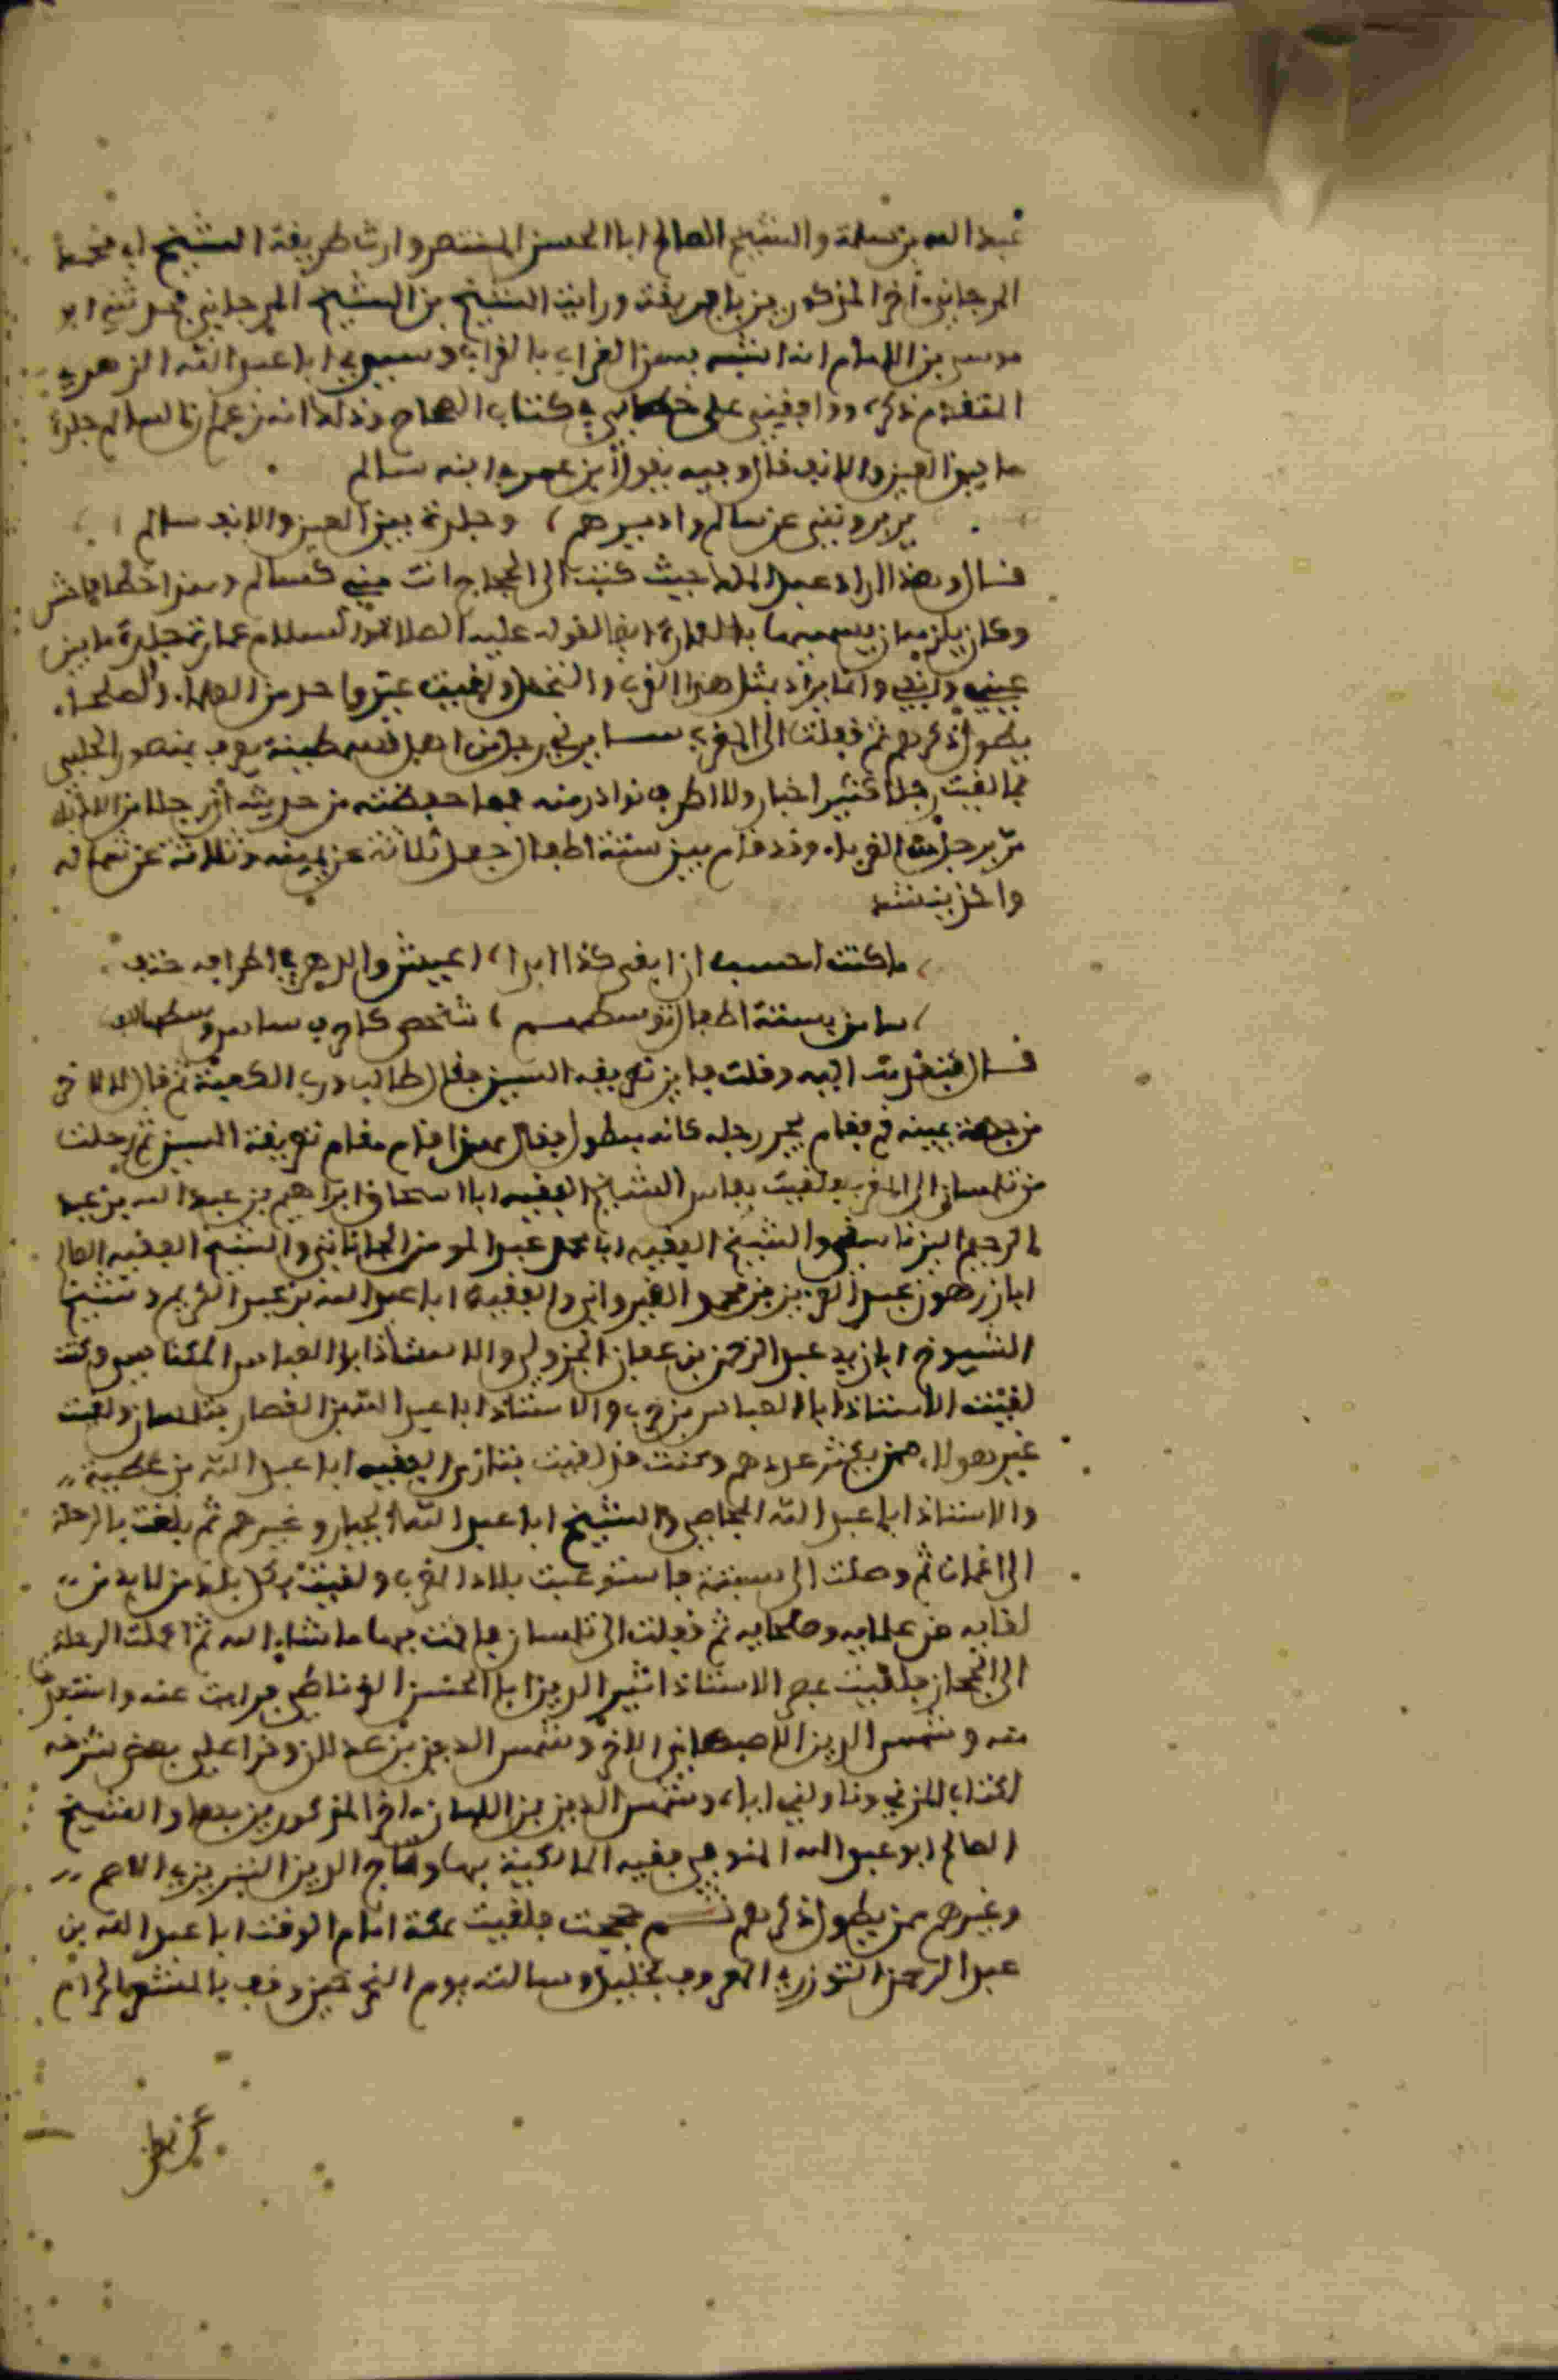 عبد الله بن سلمة والشيخ الصالح ابا الحسن المنتصر وارث طريقة الشيخ ابي محمد
المرجاني اخر المذكورين بافريقية ورايت الشيخ بن الشيخ المرجاني فحدثني ابو
موسى بن الامام انه اشبه به من الغراب بالغراب وسيدي ابا عبد الله الزهري
المتقدم ذكره ووافقني على خطابي في كتاب الصحاح وذلك انه زعم ان السالم جلدة
ما بين العين والانف قال وفيه يقول ابن عمر في ابنه سالم
يديرونني عن سالم واديرهم ، وجلدة بين العين والانف سالم
قال وهذا اراد عبد الملك حيث كتب الى الحجاج انت مني كسالم وهذا خطا فاحش
وكان يلزمه ان يسميهما بالعمارة ايضا لقوله عليه الصلاة والسلام عمار جلدة ما بين
عيني وانفي وانما يراد بمثل هذا القرب والتحلي ولقيت غير واحد من العلماء والصلحاء
يطول ذكرهم ثم قفلت الى المغرب سايرني رجل من اهل قسمطينة يعرف بمنصور الحلبي
فما لقيت رجلا كثير اخبار ولا اطرف نوادر منه فمما حفظته من حديثه ان رجلا من الادباء
مر برجل من الغرباء وقد قام بين ستة اطفال جعل ثلاثة عن يمينه وثلاثة عن شماله
واخذ ينشد
ما كنت احسب ان ابقى كذا ابدا ، اعيش والدهر في اطرافه حتف
ساس بستة اطفال توسطهم ، شخصي كاحرف ساس وسطها الف
قال فتقدمت اليه وقلت فاين تعريقة السين فقال طالب ورب الكعبة ثم قال للاخر
من جهة يمينه قم فقام يجر رجله كانه مبطول فقال هذا قام مقام تعريقة السين ثم رحلت
من تلمسان الى المغرب فلقيت بفاس الشيخ الفقيه ابا اسحاق ابراهيم بن عبد الله بن عبد
الرحيم اليزناسني والشيخ الفقيه ابا محمد عبد المومن الجاناتي والشيخ الفقيه الصالح
ابا زرهون عبد العزيز بن محمد القيرواني والفقيه ابا عبد الله بن عبد الكريم وشيخ
الشيوخ ابا زيد عبد الرحمن بن عفان الجزولي والاستاذ ابا العباس المكناسي وكنت
لقيت الاستاذ ابا العباس بن حرب والاستاذ ابا عبد الله بن القصار بتلمسان ولقيت
غير هولاء ممن يكثر عددهم وكنت قد لقيت بتازى الفقيه ابا عبد الله بن عطية
والاستاذ ابا عبد الله المجاصي والشيخ ابا عبد الله الجبار وغيرهم ثم بلغت بالرحلة
الى اغمات ثم وصلت الى سبتة فاستوعبت بلاد المغرب ولقيت بكل بلد من لا بد من
لقايه من علمايه وصلحايه ثم قفلت الى تلمسان فاقمت بها ما شاء الله ثم اعملت الرحلة
الى الحجاز فلقيت بمصر الاستاذ اثير الدين ابا حيان الغرناطي فرويت عنه واستفدت
منه وشمس الدين الاصبهاني الاخر وشمس الدين بن عدلان وقرا علي بعض شرحه
لكتاب المزني وناولني اياه وشمس الدين بن اللبان اخر المذكورين بها والشيخ
الصالح ابو عبد الله المنوفي فقيه المالكية بها وتاج الدين التبريزي الاصم
وغيرهم ممن يطول ذكرهم ثم حججت فلقيت بمكة امام الوقت ابا عبد الله بن
عبد الرحمن التوزري المعروف بخليل وسالته يوم النحر حين وقف بالمشعر الحرام
عن بطن